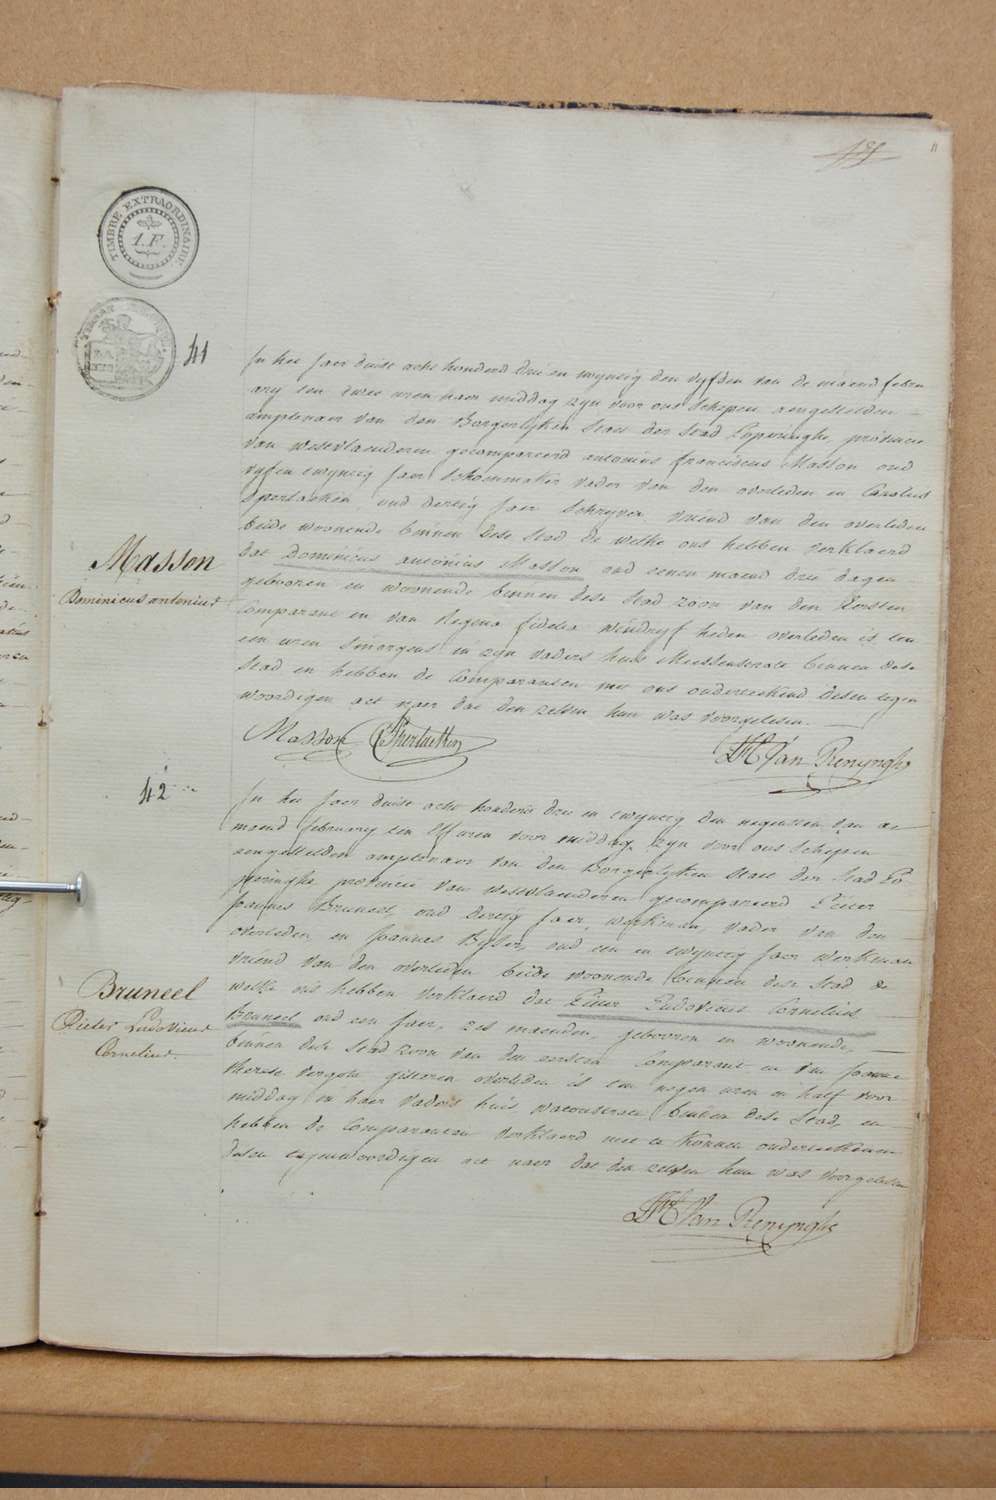 11
TIMBRE EXTRAORDINAIRE
1.F.
41
In het Jaer duist acht honderd drie en twyntig den vyfden van de maend febru
ary ten twee uren naer middag zyn voor ons Schepen aengestelden
amptenaer van den Borgerlyken Staet der Stad Poperinghe, provincie
van Westvlaenderen gecompareerd antonius franciscus Masson oud
vyf en twyntig Jaer Schoenmaker vader van den overleden en Carolus
oud dertig Jaer Schryver vriend van den overleden
beide woonende binnen dese Stad de welke ons hebben verklaerd
dat Dominicus antonius Masson oud eenen maend drie dagen
gebooren en woonende binnen dese Stad zoon van den Eersten
Comparant en van Regina fidelia heden overleden is ten
een uren Smorgens in zyn vaders huis binnen dese
Stad en hebben de Comparanten met ons onderteekend desen tegen
woordigen act naer dat den zelven hun was voorgelesen.
Masson
Dominicus antonius
Masson
Van Renynghe
42
In het Jaer duist acht honderd drie en twyntig den negensten van de
maend february ten elf uren voor middag, zyn voor ons Schepen
aengestelden amptenaer van den Borgerlyken Staet der Stad Po-
peringhe provincie van Westvlaenderen gecompareerd Pieter
Joannes Bruneel, oud dertig Jaer, werkman, vader van den
overleden, en Joannes oud een en twyntig Jaer werkman
vriend van den overleden beide woonende binnen dese Stad de
welke ons hebben verklaerd dat Pieter Ludovicus Cornelius
Bruneel oud een Jaer, zes maenden, gebooren en woonende,
binnen dese Stad zoon van den eersten Comparant en van Joanna
therese gisteren overleden is ten negen uren en half voor
middag in haer vaders huis binnen dese Stad, en
hebben de Comparanten verklaerd niet te konnen onderteekenen
desen tegenwoordigen act naer dat den zelven hun was voorgelesen
Bruneel
Pieter Ludovicus
Cornelius.
Van Renynghe